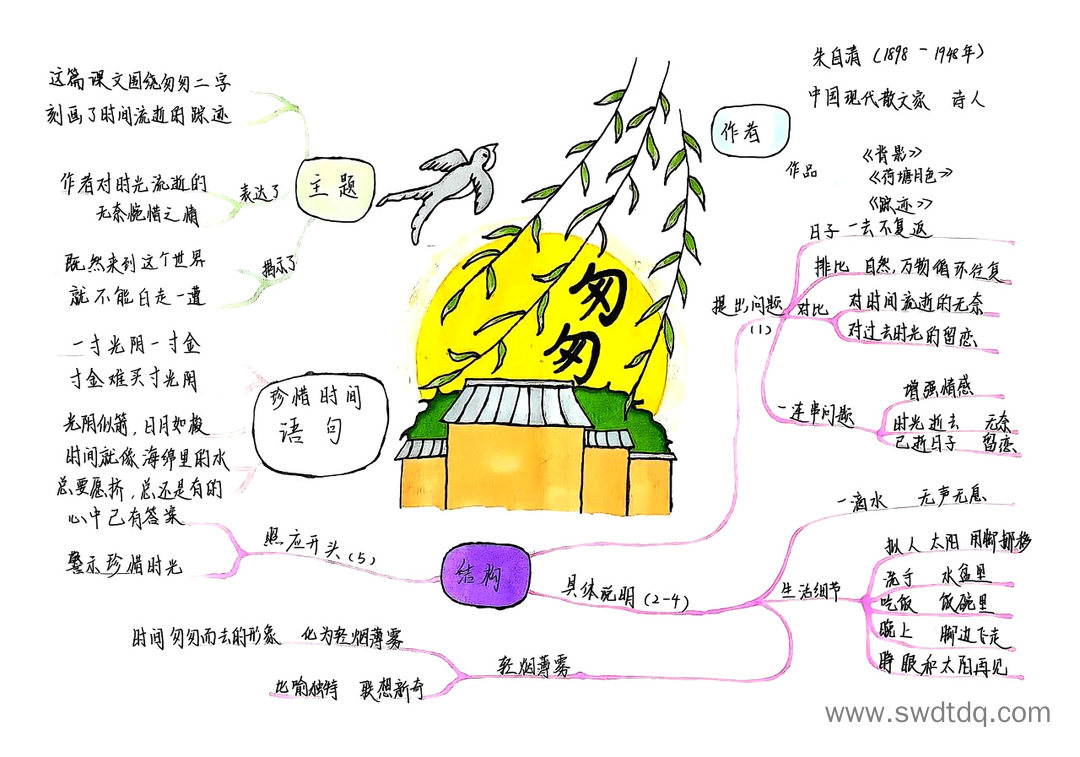 朱自清（1898-1948年）
中国现代散文家 诗人
作者
作品
《背影》
《荷塘月色》
《踪迹》
这篇课文围绕匆匆二字
刻画了时间流逝的踪迹
主题
表达了
作者对时光流逝的
无奈惋惜之情
揭示了
既然来到这个世界
就不能白走一遭
匆匆
珍惜时间
语句
一寸光阴一寸金
寸金难买寸光阴
光阴似箭，日月如梭
时间就像海绵里的水
总要愿挤，总还是有的
结构
提出问题
（1）
日子一去不复返
排比 自然，万物循环往复
对比
对时间流逝的无奈
对过去时光的留恋
一连串问题
增强情感
时光逝去 无奈
已逝日子 留恋
具体说明（2-4）
一滴水 无声无息
生活细节
拟人 太阳 用脚挪移
洗手 水盆里
吃饭 饭碗里
晚上 脚边飞走
睁眼和太阳再见
轻烟薄雾
时间匆匆而去的形象 化为轻烟薄雾
比喻独特 联想新奇
照应开头（5）
心中已有答案
警示珍惜时光
www.swdtdq.com